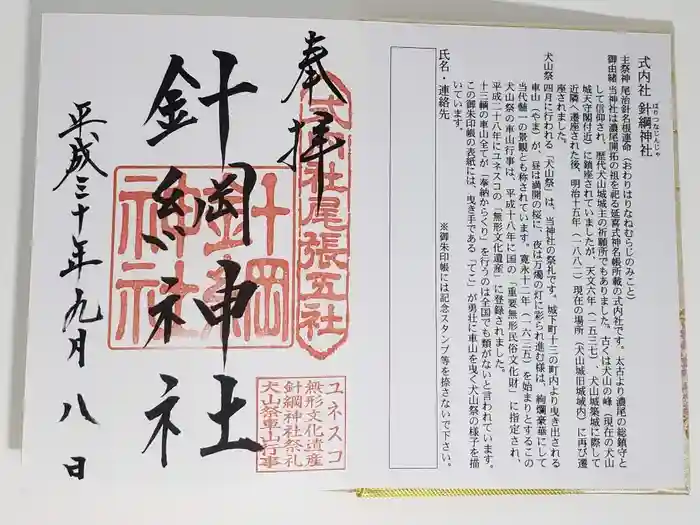 式内社 針綱神社
はりつなじんじゃ
主祭神 尾治針名根連命(おわりはりなねむらじのみこと)
御由緒 当神社は濃尾開拓の祖を祀る延喜式神名帳所載の式内社です。太古より濃尾の総鎮守と
して信仰され、歴代犬山城城主の祈願所でもありました。古くは犬山の峰(現在の犬山
城天守閣付近)に鎮座されていましたが、天文六年(一五三七)、犬山城築城に際して
近隣へ遷座された後、明治十五年(一八八二)現在の場所(犬山城旧城域内)に再び遷
座されました。
犬山祭 四月に行われる「犬山祭」は、当神社の祭礼です。城下町十三の町内より曳き出される
車山(やま)が、昼は満開の桜に、夜は万燭の灯に彩られ進む様は、絢爛豪華にして
当代随一の景観とも称されています。寛永十二年(一六三五)を始まりとするこの
犬山祭の車山行事は、平成十八年に国の「重要無形民俗文化財」に指定され、
平成二十八年にユネスコの「無形文化遺産」に登録されました。
十三輌の車山全てが「奉納からくり」を行うのは全国でも類がないと言われています。
この御朱印帳の表紙には、曳き手である「てこ」が勇壮に車山を曳く犬山祭の様子を描
いています。
※御朱印帳には記念スタンプ等を捺さないで下さい。
氏名・連絡先
奉拝
式内社尾張五社
針綱神社
針綱神社
ユネスコ
無形文化遺産
針綱神社祭礼
犬山祭車山行事
平成三十年九月八日